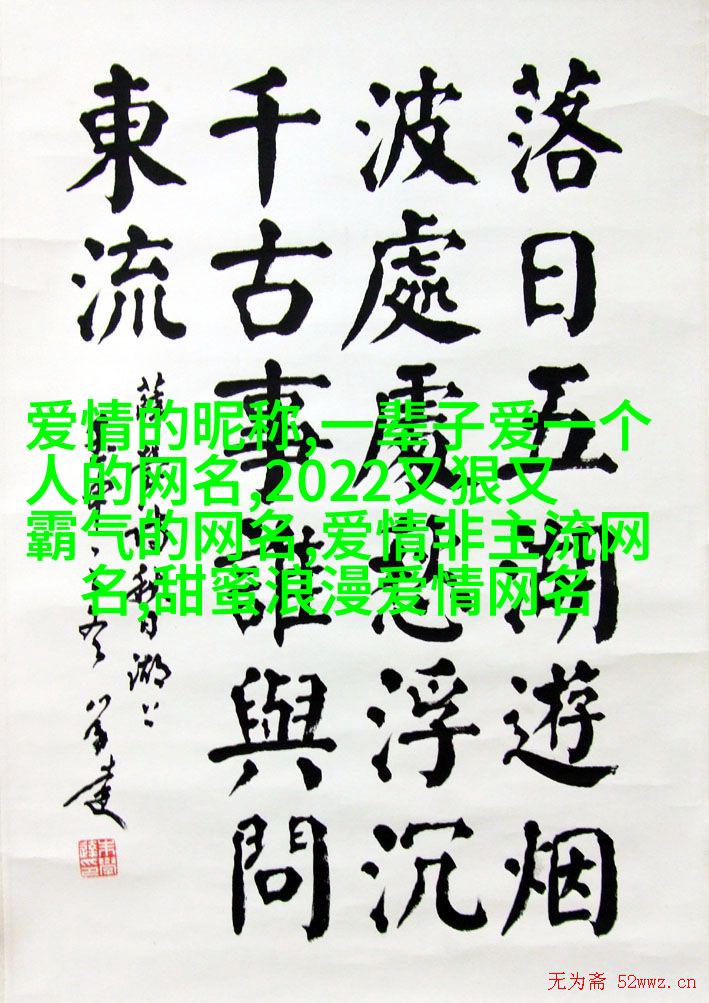 落日五湖遊烟
波處處愁浮沉
千古事誰與問
東流
薛瑩秋日湖上
學達
爱情的昵称,一辈子爱一个
人的网名,2022又狠又
霸气的网名,爱情非主流网
名,甜蜜浪漫爱情网名
无为斋 52wwz.cn